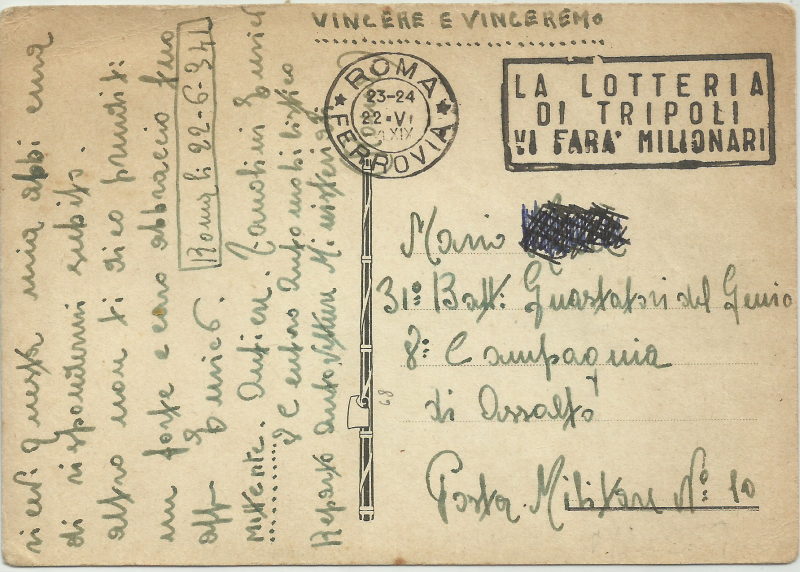 VINCERE E VINCEREMO
ROMA
FERROVIA
23-24
22·VI
XIX
LA LOTTERIA
DI TRIPOLI
VI FARA' MILIONARI
Mario
31º Batt: Guastatori del Genio
8ª Compagnia
di Assalto
Posta Militare Nº: 10
68
ricevi questa mia abbi cura
di rispondermi subito.
altro non ti dico prendi ti
un forte e caro abbraccio tuo
aff Enrico.
Roma li 22-6-341
Mittente. Artier. Enrico
8 Centro Automobilistico
Reparto Autovetture Ministeriali